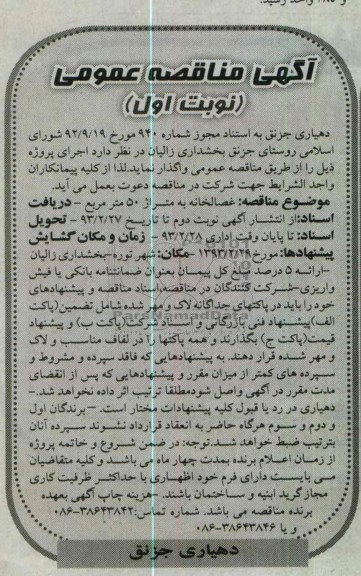 آگهی مناقصه عمومی
(نوبت اول)
دهیاری جزنق به استناد مجوز شماره ۹۴۰ مورخ ۹۲/۹/۱۹ شورای
اسلامی روستای جزنق بخشداری زالیان در نظر دارد اجرای پروژه
ذیل را از طریق مناقصه عمومی واگذار نماید.لذا از کلیه پیمانکاران
واجد الشرایط جهت شرکت در مناقصه دعوت بعمل می آید.
موضوع مناقصه: غسالخانه به متراژ ۵۰ متر مربع - دریافت
اسناد:از انتشار آگهی نوبت دوم تا تاریخ ۹۳/۲/۲۷ - تحویل
اسناد: تا پایان وقت اداری ۹۳/۲/۲۸ - زمان و مکان گشایش
پیشنهادها: مورخ ۱۳۹۳/۲/۲۹ -مکان: شهر توره-بخشداری زالیان
-ارائه ۵ درصد مبلغ کل پیمان بعنوان ضمانتنامه بانکی یا فیش
واریزی-شرکت کنندگان در مناقصه،اسناد مناقصه و پیشنهادهای
خود را باید در پاکتهای جداگانه لاک و مهر شده شامل تضمین(پاکت
الف)پیشنهاد فنی بازرگانی و اسناد شرکت(پاکت ب) و پیشنهاد
قیمت(پاکت ج) بگذارند و همه پاکتها را در لفاف مناسب و لاک
و مهر شده قرار دهند. به پیشنهادهایی که فاقد سپرده و مشروط و
سپرده های کمتر از میزان مقرر و پیشنهادهایی که پس از انقضای
مدت مقرر در آگهی واصل شودمطلقا ترتیب اثر داده نخواهد شد.-
دهیاری در رد یا قبول کلیه پیشنهادات مختار است. -برندگان اول
و دوم و سوم هرگاه حاضر به انعقاد قرارداد نشوند سپرده آنان
بترتیب ضبط خواهد شد.توجه: در ضمن شروع و خاتمه پروژه
از زمان اعلام برنده بمدت چهار ماه می باشد و کلیه متقاضیان
می بایست دارای فرم خود اظهاری با حداکثر ظرفیت کاری
مجاز گرید ابنیه و ساختمان باشند. -هزینه چاپ آگهی بعهده
برنده مناقصه می باشد. شماره تماس:۳۸۶۴۳۸۴۲-۰۸۶
و یا ۳۸۶۴۳۸۴۶-۰۸۶
دهیاری جزنق
ParsNamadData